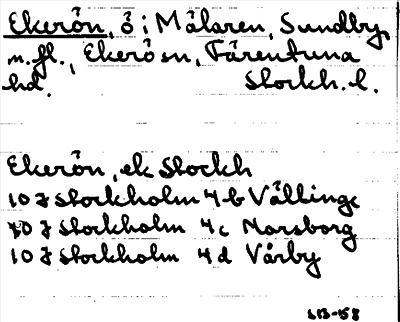 Ekerön, ö i Mälaren, Sundby,
m.fl., Ekerö sn, Färentuna
hd. Stockh. l.
Ekerön, ek Stockh
10 J Stockholm 4 b Vällinge
10 J Stockholm 4 c Norsborg
10 J Stockholm 4 d Vårby